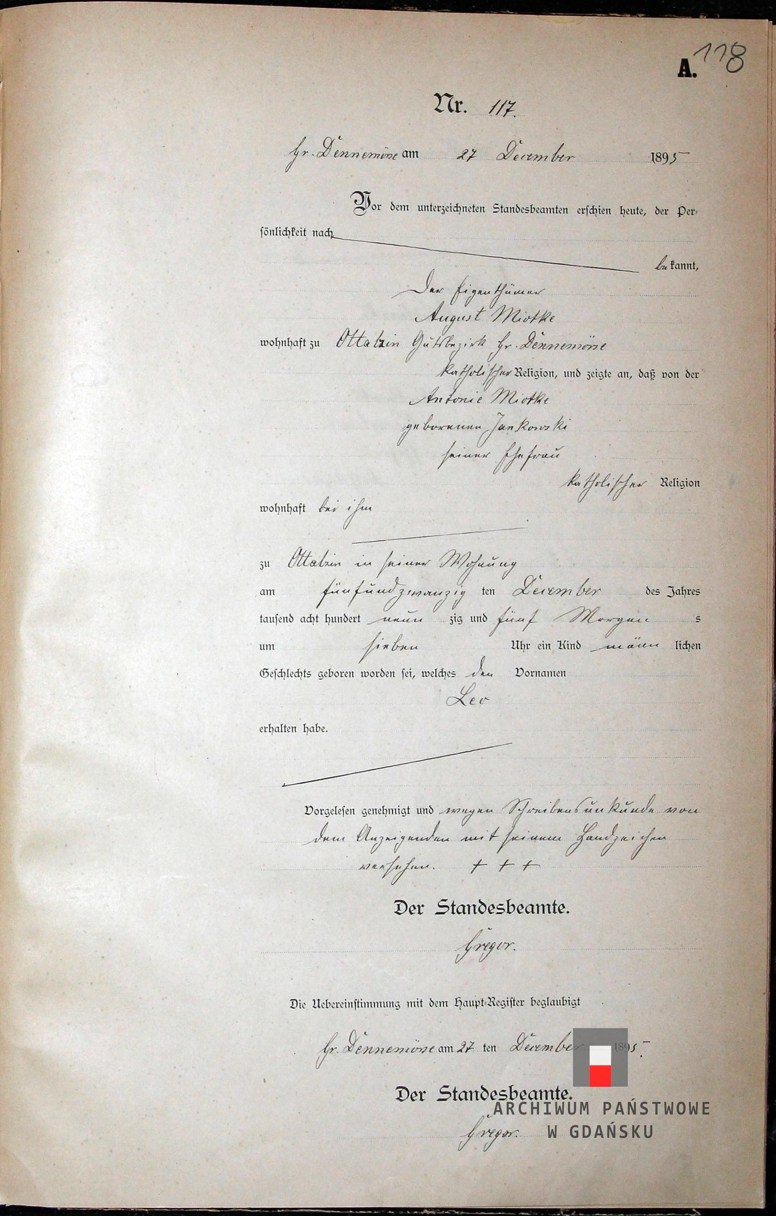 118
A.
Nr. 117.
Gr. Dennemörse am 27 December 1895
Vor dem unterzeichneten Standesbeamten erschien heute, der Per-
sönlichkeit nach
bekannt,
der Eigenthümer
August Miotke
wohnhaft zu Ottalzin Gutsbezirk Gr. Dennemörse
katholischer Religion, und zeigte an, daß von der
Antonie Miotke
geborenen Jankowski
seiner Ehefrau
katholischer Religion
wohnhaft bei ihm
zu Ottalzin in seiner Wohnung
am fünfundzwanzig ten December des Jahres
tausend acht hundert neun zig und fünf Morgen s
um sieben Uhr ein Kind männ lichen
Geschlechts geboren worden sei, welches den Vornamen
Leo
erhalten habe.
Vorgelesen genehmigt und wegen Schreibensunkunde von
dem Anzeigenden mit seinem Handzeichen
versehen. + + +
Der Standesbeamte.
Gregor.
Die Uebereinstimmung mit dem Haupt-Register beglaubigt
Gr. Dennemörse am 27 ten December 1895.
Der Standesbeamte.
Gregor.
ARCHIWUM PAŃSTWOWE
W GDAŃSKU